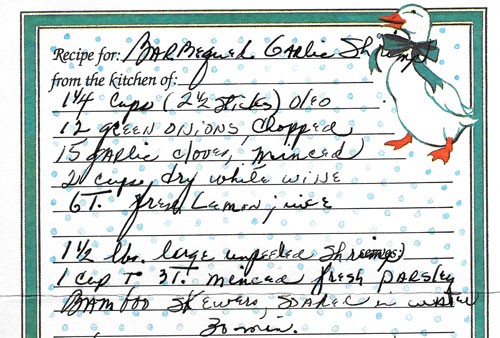 Recipe for: BarBequed Garlic Shrimp
from the kitchen of:
1 1/4 Cups (2 1/2 Sticks) Oleo
12 green onions, chopped
15 garlic cloves, minced
2 cups dry white wine
6 T. fresh Lemon juice
1 1/2 lbs. large unpeeled Shrimp
1 Cup + 3 T. minced fresh parsley
Bamboo Skewers, soaked in water
30 min.